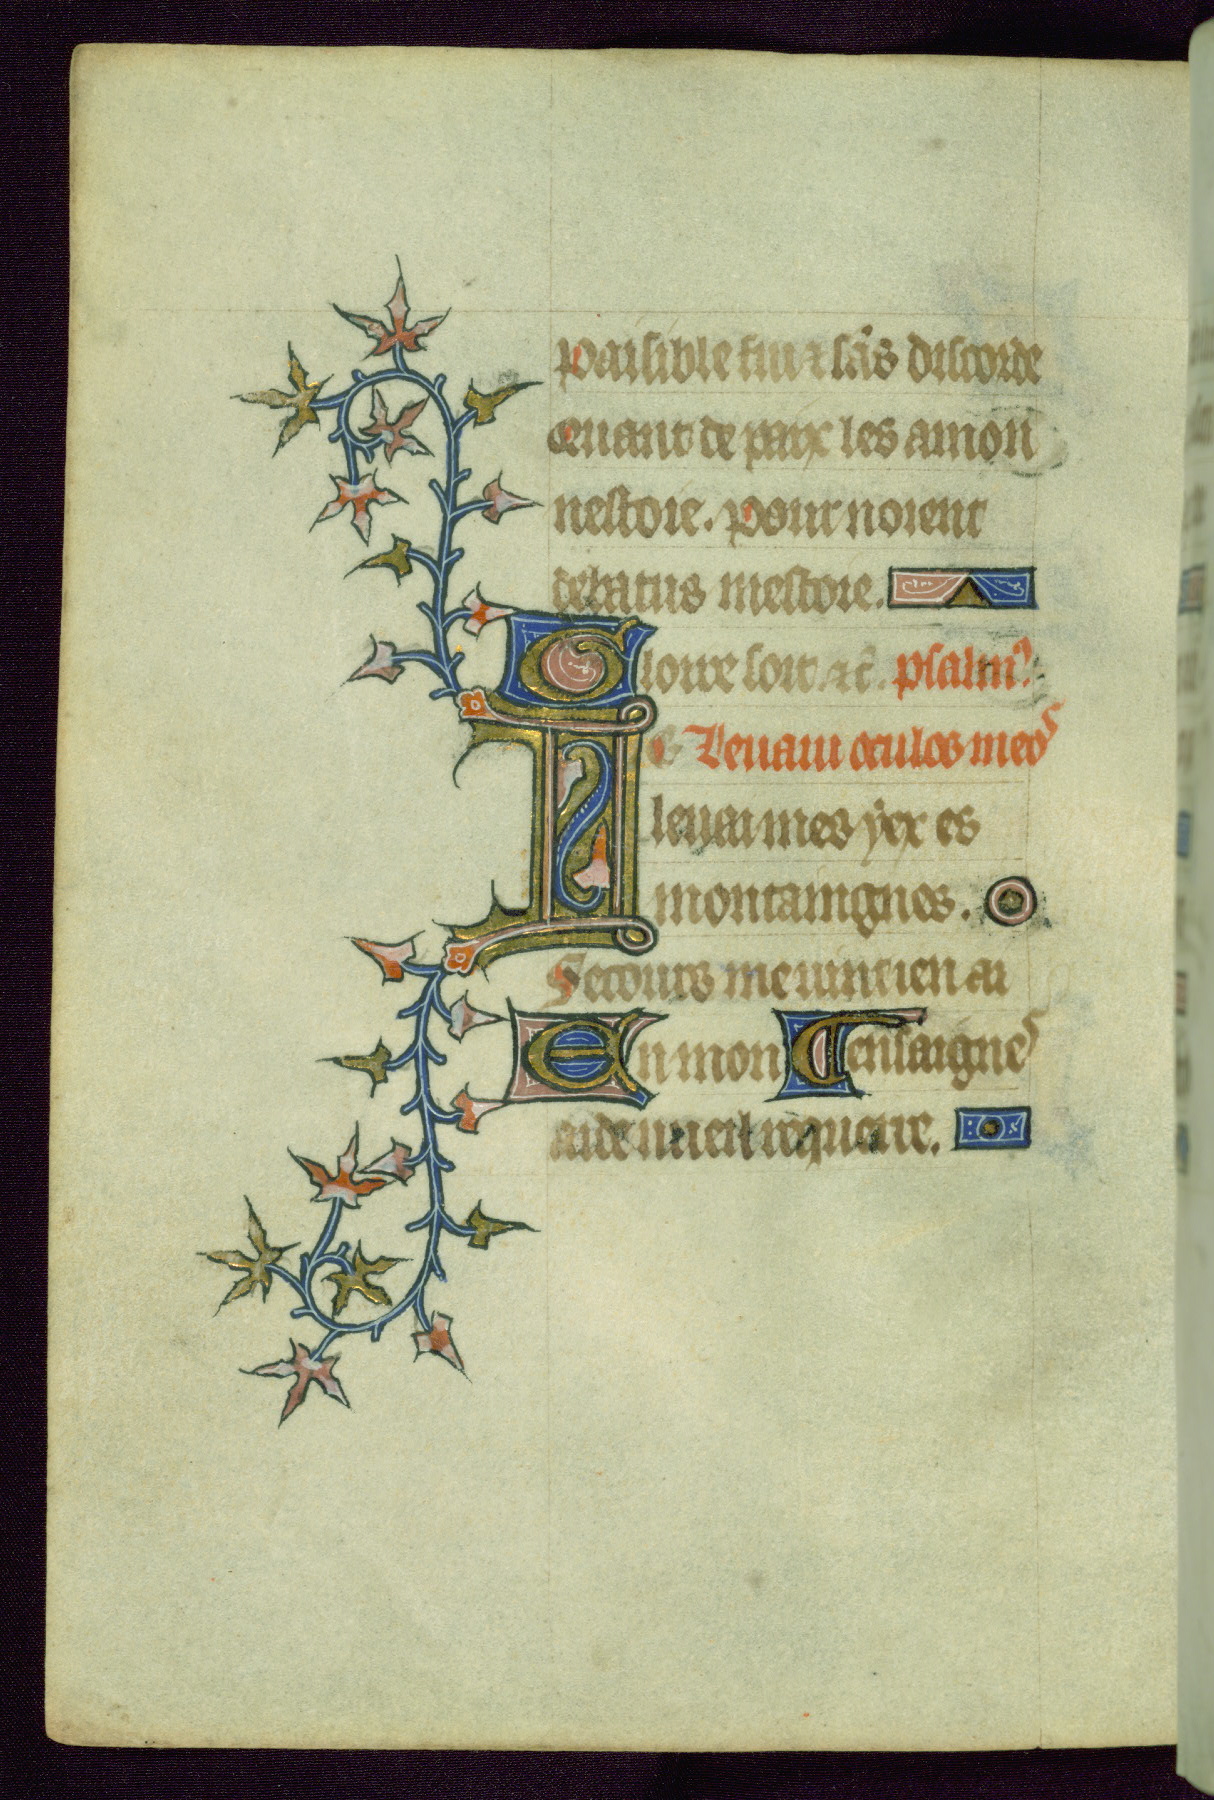 paisible fui ⁊ sãs discorde
Quant de paix les amon
nestoie. pour noient
debatus mestoie.
Gloire soit. ⁊c̃. psalmꝰ.
Leuaui oculos meos
Ie leuai mes yex es
montaingnes.
Secours me uint ien ai
En mon Censaignes
aide uueil requerre.